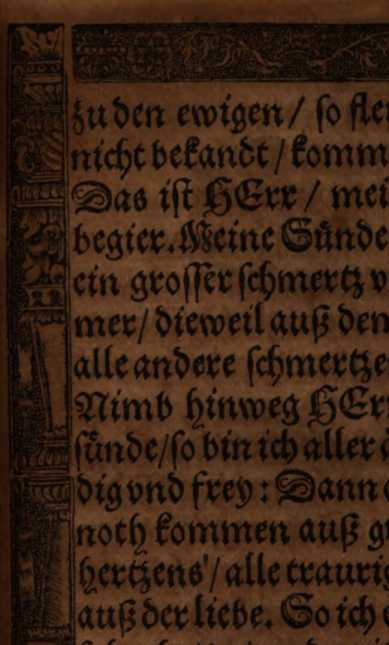 zu den ewigen / so
nicht bekandt / komm
Das ist HErr / mei
begier. Meine Sünde
ein grosser schmertz v
mer / dieweil auß den
alle andere schmertze
Nimb hinweg HEr
sünde / so bin ich aller
dig vnd frey : Dann
noth kommen auß g
hertzens / alle traurig
auß der liebe. So ich